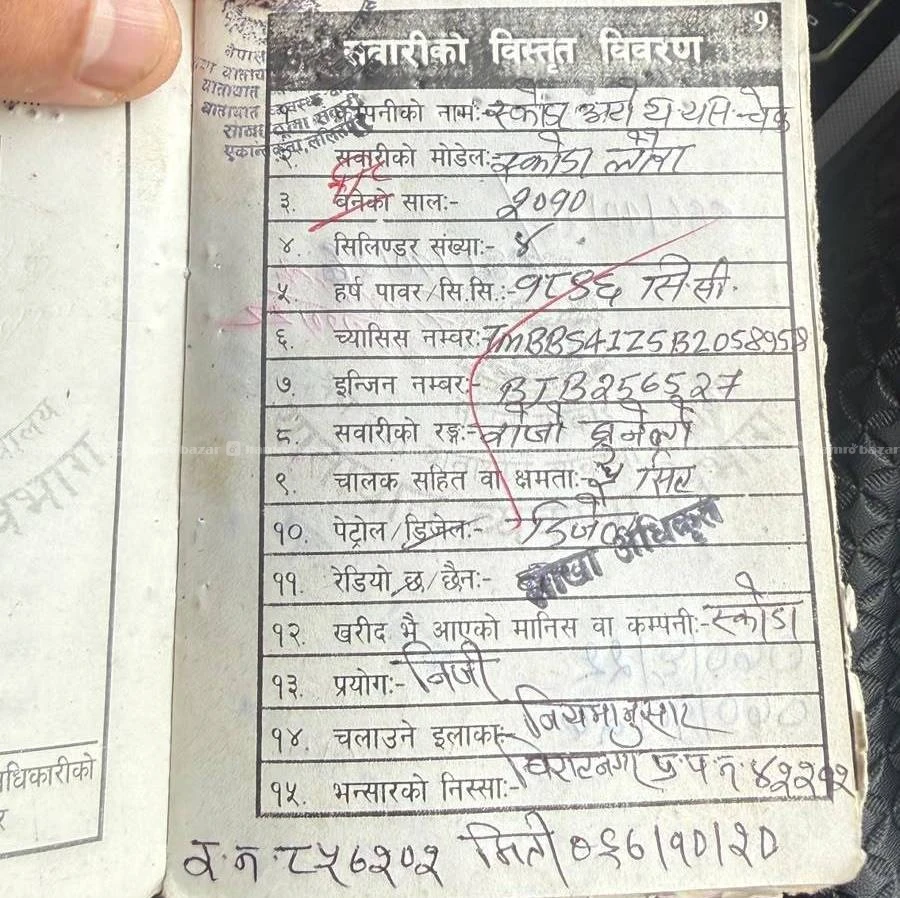 9
सवारीको विस्तृत विवरण
नेपाल
यातायात
यातायात
१. कम्पनीको नाम:- स्कोडा अटो
२. सवारीको मोडेल:- स्कोडा लौरा
३. बनेको साल:- २०१०
४. सिलिण्डर संख्या:- ४
५ हर्ष पावर/सि.सि.:- १९८६ सि.सी.
६. च्यासिस नम्बर: TMBBS41Z5B2058958
७. इन्जिन नम्बर:-
८. सवारीको रङ्ग:-
९. चालक सहित वा क्षमता:- ५ सिट
१०. पेट्रोल/डिजेल:- डिजेल
शाखा अधिकृत
११. रेडियो छ/छैन:-
१२. खरीद भै आएको मानिस वा कम्पनी:- स्कोडा
१३. प्रयोग:- निजी
१४. चलाउने इलाका:- नियमानुसार
१५. भन्सारको निस्सा:- विराटनगर प्र.प.न ४२२१२
र.न. ८५६२०२ मिती ०६७/१०/२०
धिकारीको
hamrobazar